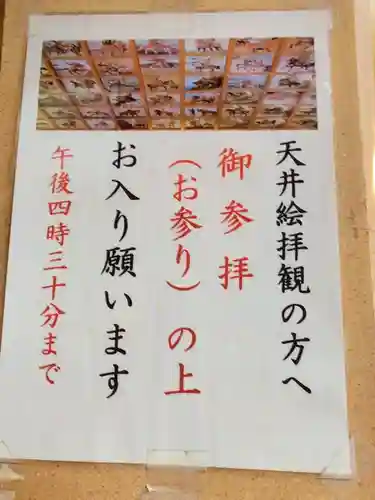 天井絵拝観の方へ
御参拝
(お参り)の上
お入り願います
午後四時三十分まで